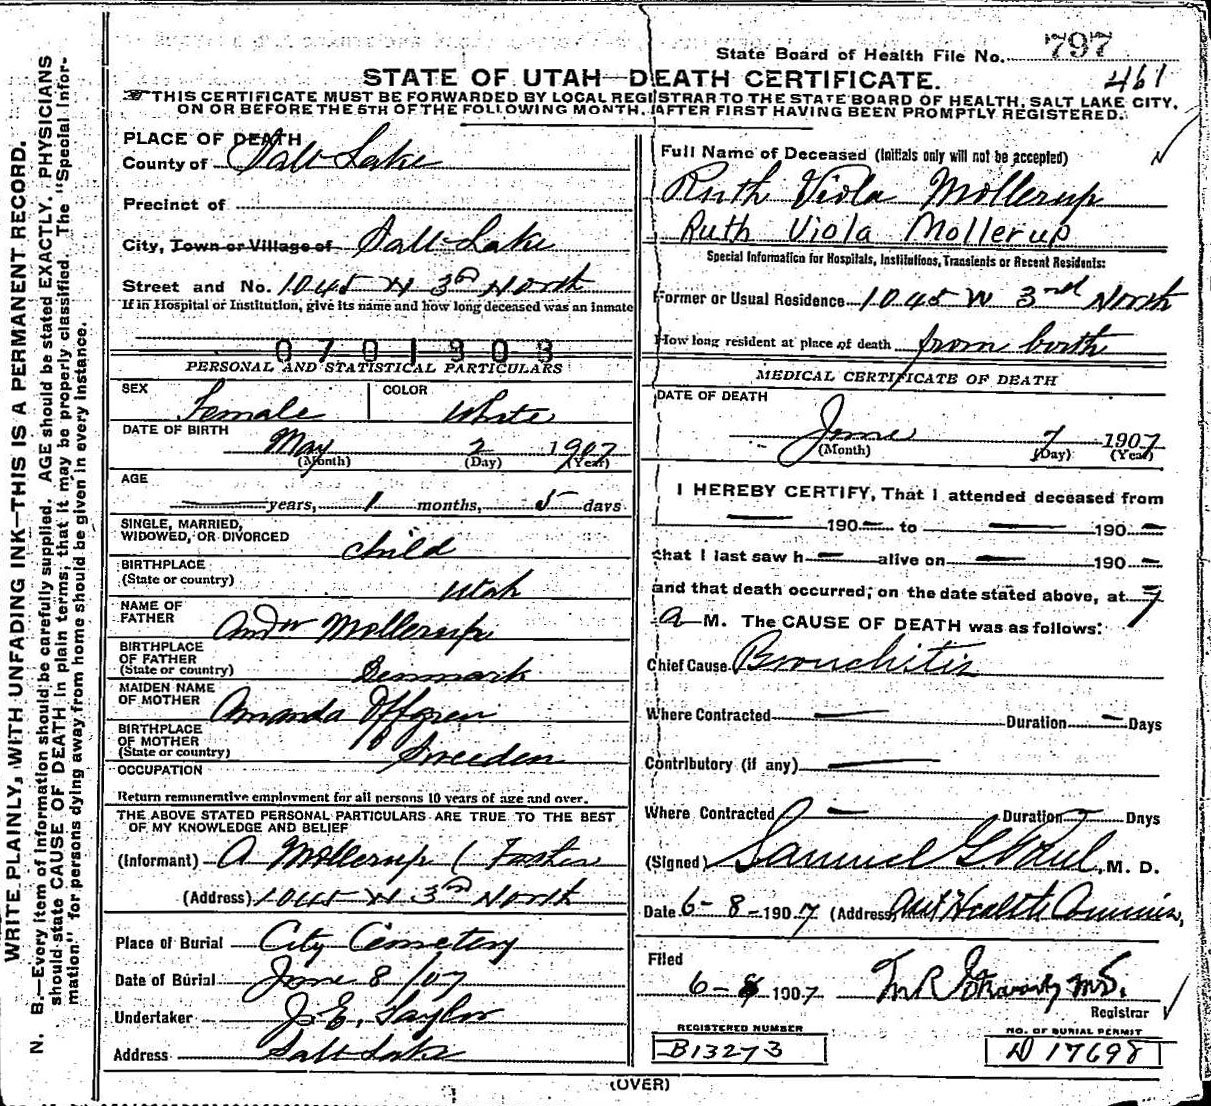 State Board of Health File No. 797
461
STATE OF UTAH—DEATH CERTIFICATE.
THIS CERTIFICATE MUST BE FORWARDED BY LOCAL REGISTRAR TO THE STATE BOARD OF HEALTH, SALT LAKE CITY,
ON OR BEFORE THE 5TH OF THE FOLLOWING MONTH, AFTER FIRST HAVING BEEN PROMPTLY REGISTERED.
WRITE PLAINLY, WITH UNFADING INK—THIS IS A PERMANENT RECORD.
N. B.—Every item of information should be carefully supplied. AGE should be stated EXACTLY. PHYSICIANS
should state CAUSE OF DEATH in plain terms, that it may be properly classified. The "Special Infor-
mation" for persons dying away from home should be given in every instance.
PLACE OF DEATH
County of Salt Lake
Precinct of
City, Town or Village of Salt Lake
Street and No. 1045 W 3rd North
If in Hospital or Institution, give its name and how long deceased was an inmate
0701909
PERSONAL AND STATISTICAL PARTICULARS
SEX Female COLOR White
DATE OF BIRTH May 2 1907
(Month) (Day) (Year)
AGE
— years, 1 months, 5 days
SINGLE, MARRIED,
WIDOWED, OR DIVORCED child
BIRTHPLACE
(State or country) Utah
NAME OF
FATHER Andw Mollerup
BIRTHPLACE
OF FATHER
(State or country) Denmark
MAIDEN NAME
OF MOTHER Amanda Offgren
BIRTHPLACE
OF MOTHER
(State or country) Sweeden
OCCUPATION
Return remunerative employment for all persons 10 years of age and over.
THE ABOVE STATED PERSONAL PARTICULARS ARE TRUE TO THE BEST
OF MY KNOWLEDGE AND BELIEF
(Informant) A Mollerup (
(Address) 1045 W 3rd North
Place of Burial City Cemetery
Date of Burial June 8/07
Undertaker J. E. Taylor
Address Salt Lake
Full Name of Deceased (Initials only will not be accepted)
Ruth Viola Mollerup
Ruth Viola Mollerup
Special Information for Hospitals, Institutions, Transients or Recent Residents:
Former or Usual Residence 1045 W 3rd North
How long resident at place of death from birth
MEDICAL CERTIFICATE OF DEATH
DATE OF DEATH
June 7 1907
(Month) (Day) (Year)
I HEREBY CERTIFY, That I attended deceased from
— 190— to — 190—
that I last saw h— alive on — 190—
and that death occurred, on the date stated above, at 7
a M. The CAUSE OF DEATH was as follows:
Chief Cause Bronchitis
Where Contracted — Duration — Days
Contributory (if any) —
Where Contracted — Duration — Days
(Signed) Samuel G Paul, M. D.
Date 6-8-1907 (Address)
Filed
6-8 1907
Registrar
REGISTERED NUMBER
B13273
NO. OF BURIAL PERMIT
D 17698
(OVER)